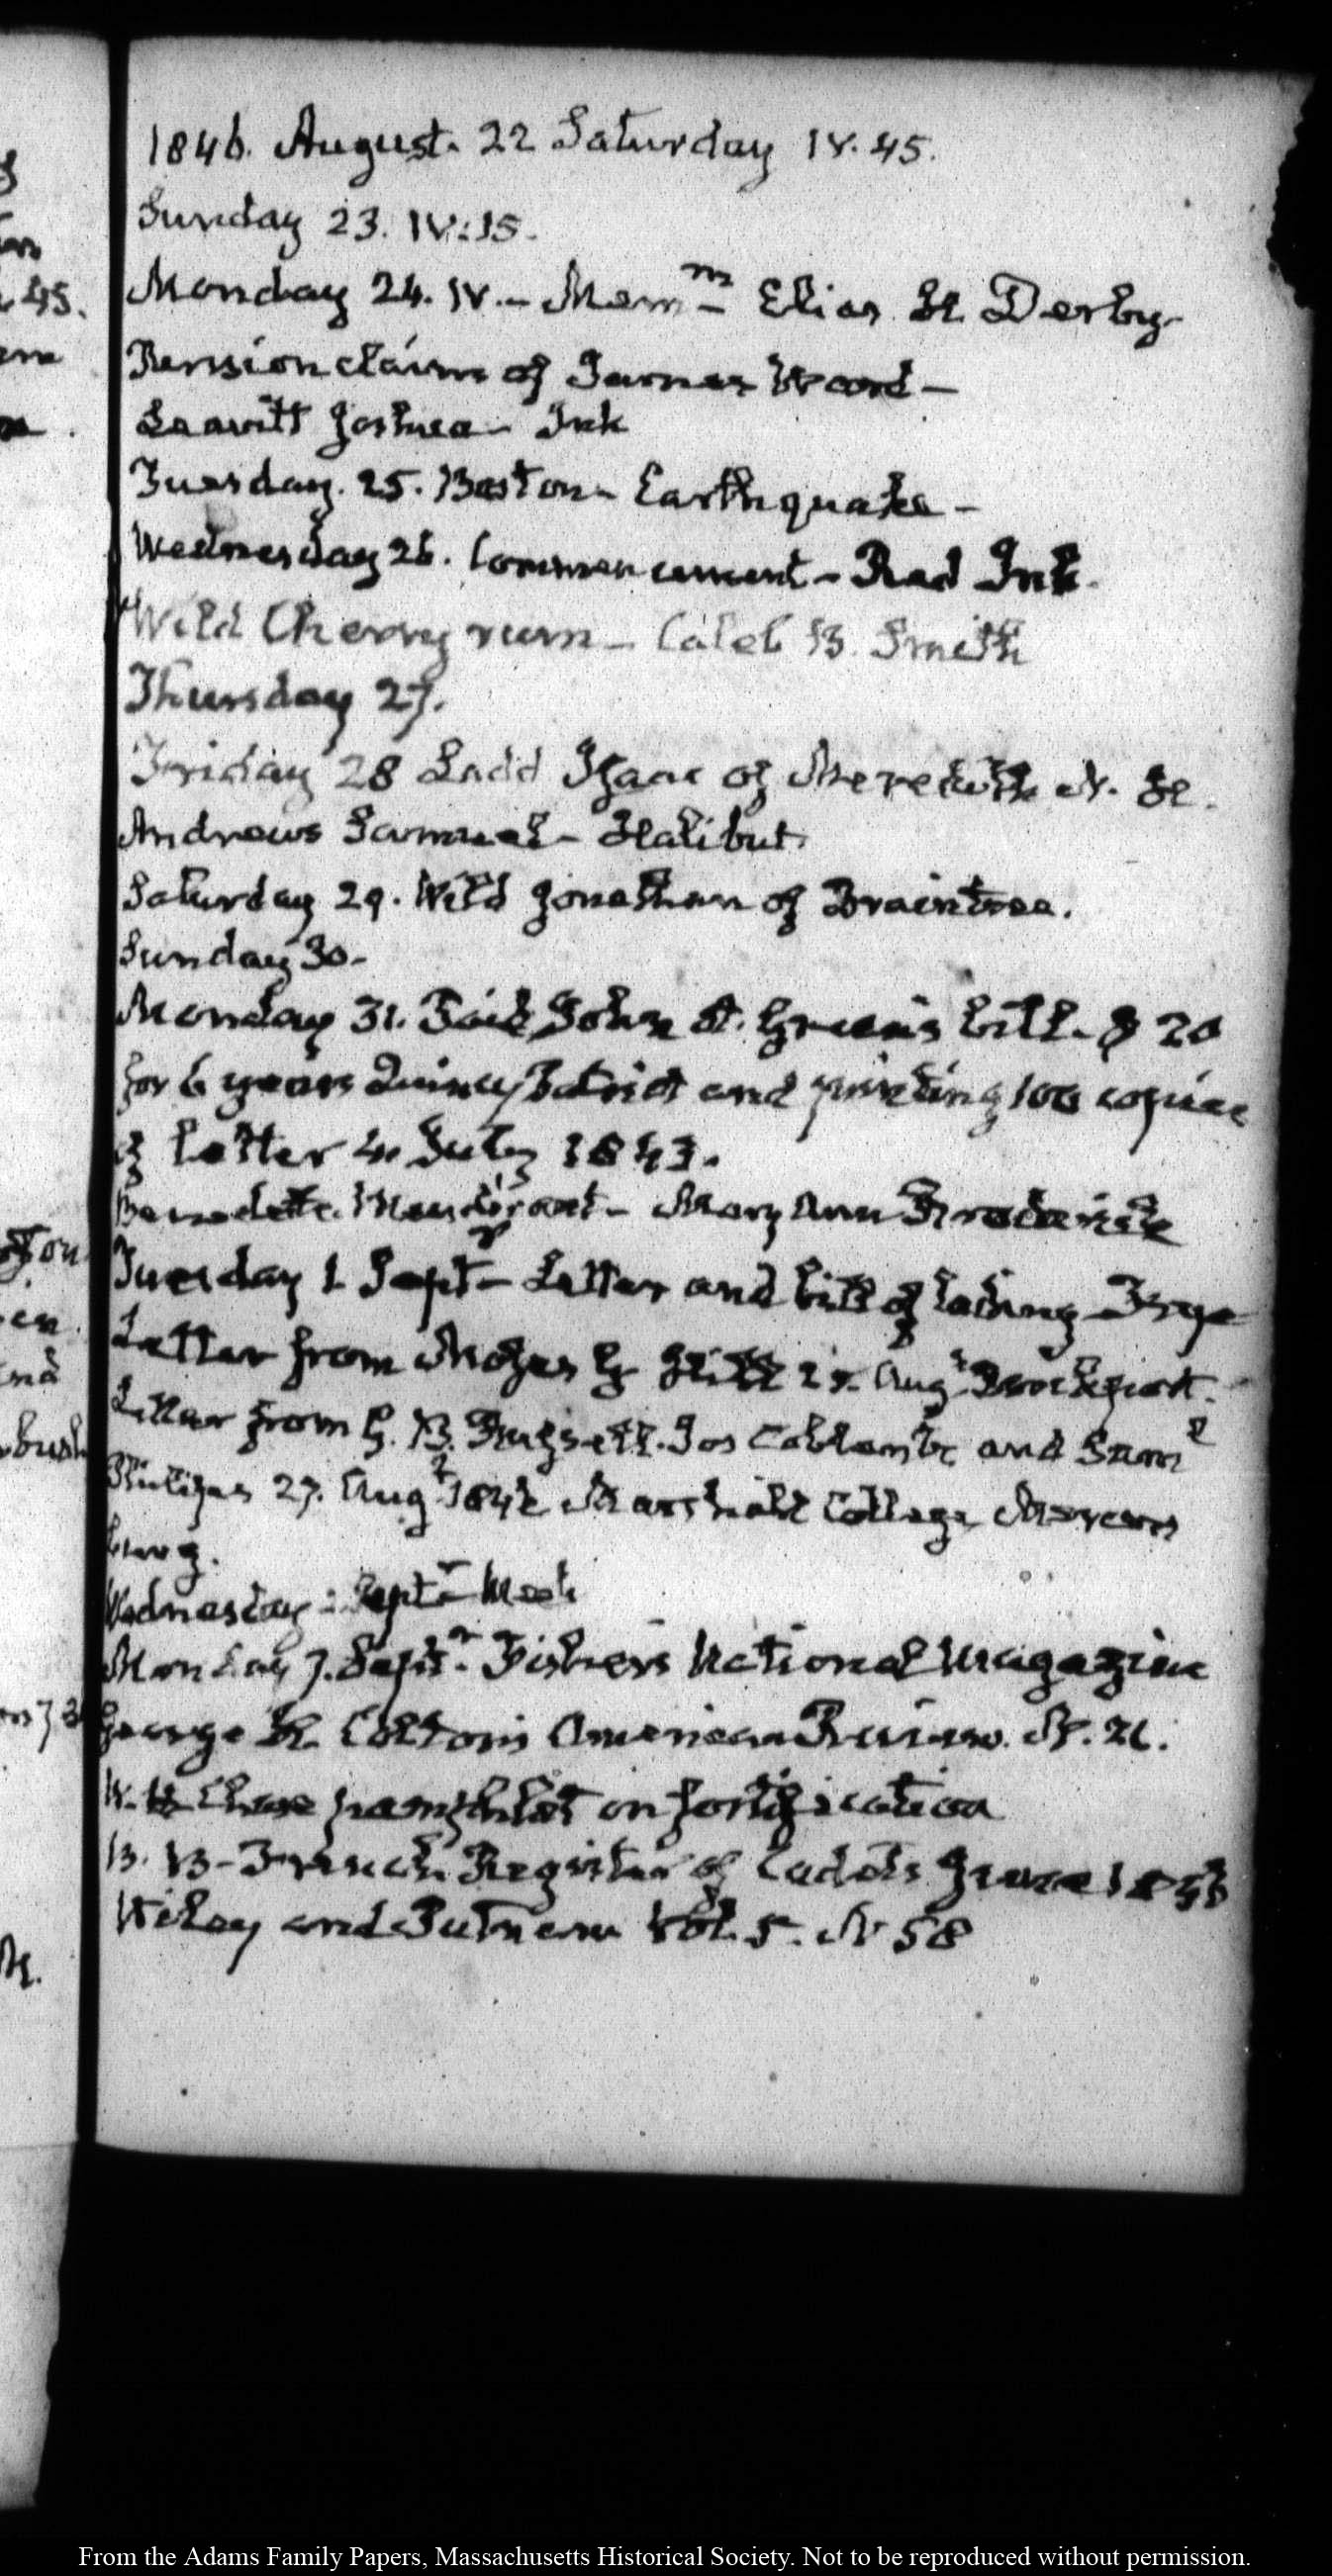 1846. August. 22 Saturday IV. 45.
Sunday 23. IV:15.
Monday 24. IV.– Mem^m – Elias H. Derby–
Pension claim of James Wood –
Leavitt Joshua – Ink
Tuesday. 25. Boston – Earthquake –
Wednesday 26. Commencement – Red Ink.
Wild Cherry rum – Caleb B. Smith
Thursday 27.
Friday 28 Ladd Isaac of Meredith N. H.
Andrews Samuel – Halibut.
Saturday 29. Wild Jonathan of Braintree.
Sunday 30 –
Monday 31. Paid John A. Green's bill. $ 20
for 6 years Quincy Patriot and printing 100 copies
of Letter 4. July 1843.
– Mary Ann
Tuesday 1 Sept^r – Letter and bill of lading
Letter from Moses G. Aug^t
Letter from G. B. Jos and Sam^l
27. Aug^t 184 Marshall College Mercers
burg.
Wednesday Sept^r
Monday 7. Sept^r. Fisher's National Magazine
George H. Colton's American Review. N. 21.
W. H. Chase pamphlet on fortification
B. B. French Register of Cadets June 184
Wiley and Putnam Vol. 5. N 58
on
en
bush
From the Adams Family Papers, Massachusetts Historical Society. Not to be reproduced without permission.